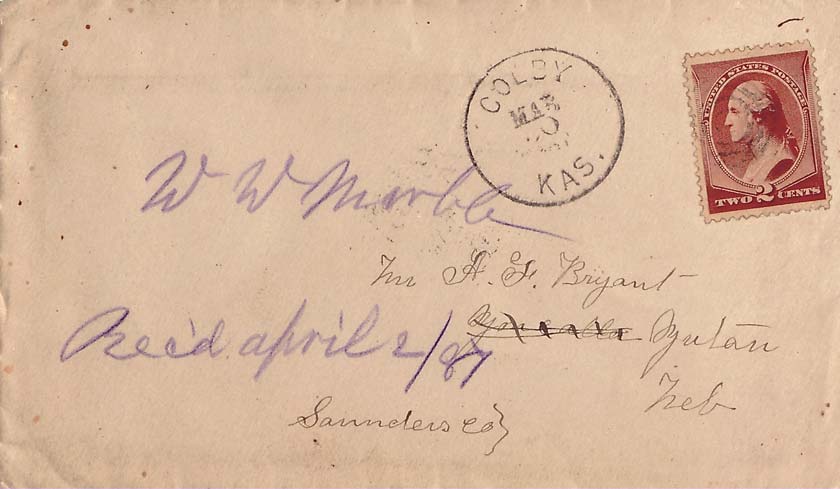 COLBY
MAR
KAS.
UNITED STATES POSTAGE
TWO 2 CENTS
W W Marble
A. F. Bryant
Yutan
Rec'd april 2/87
Neb
Saunders co}